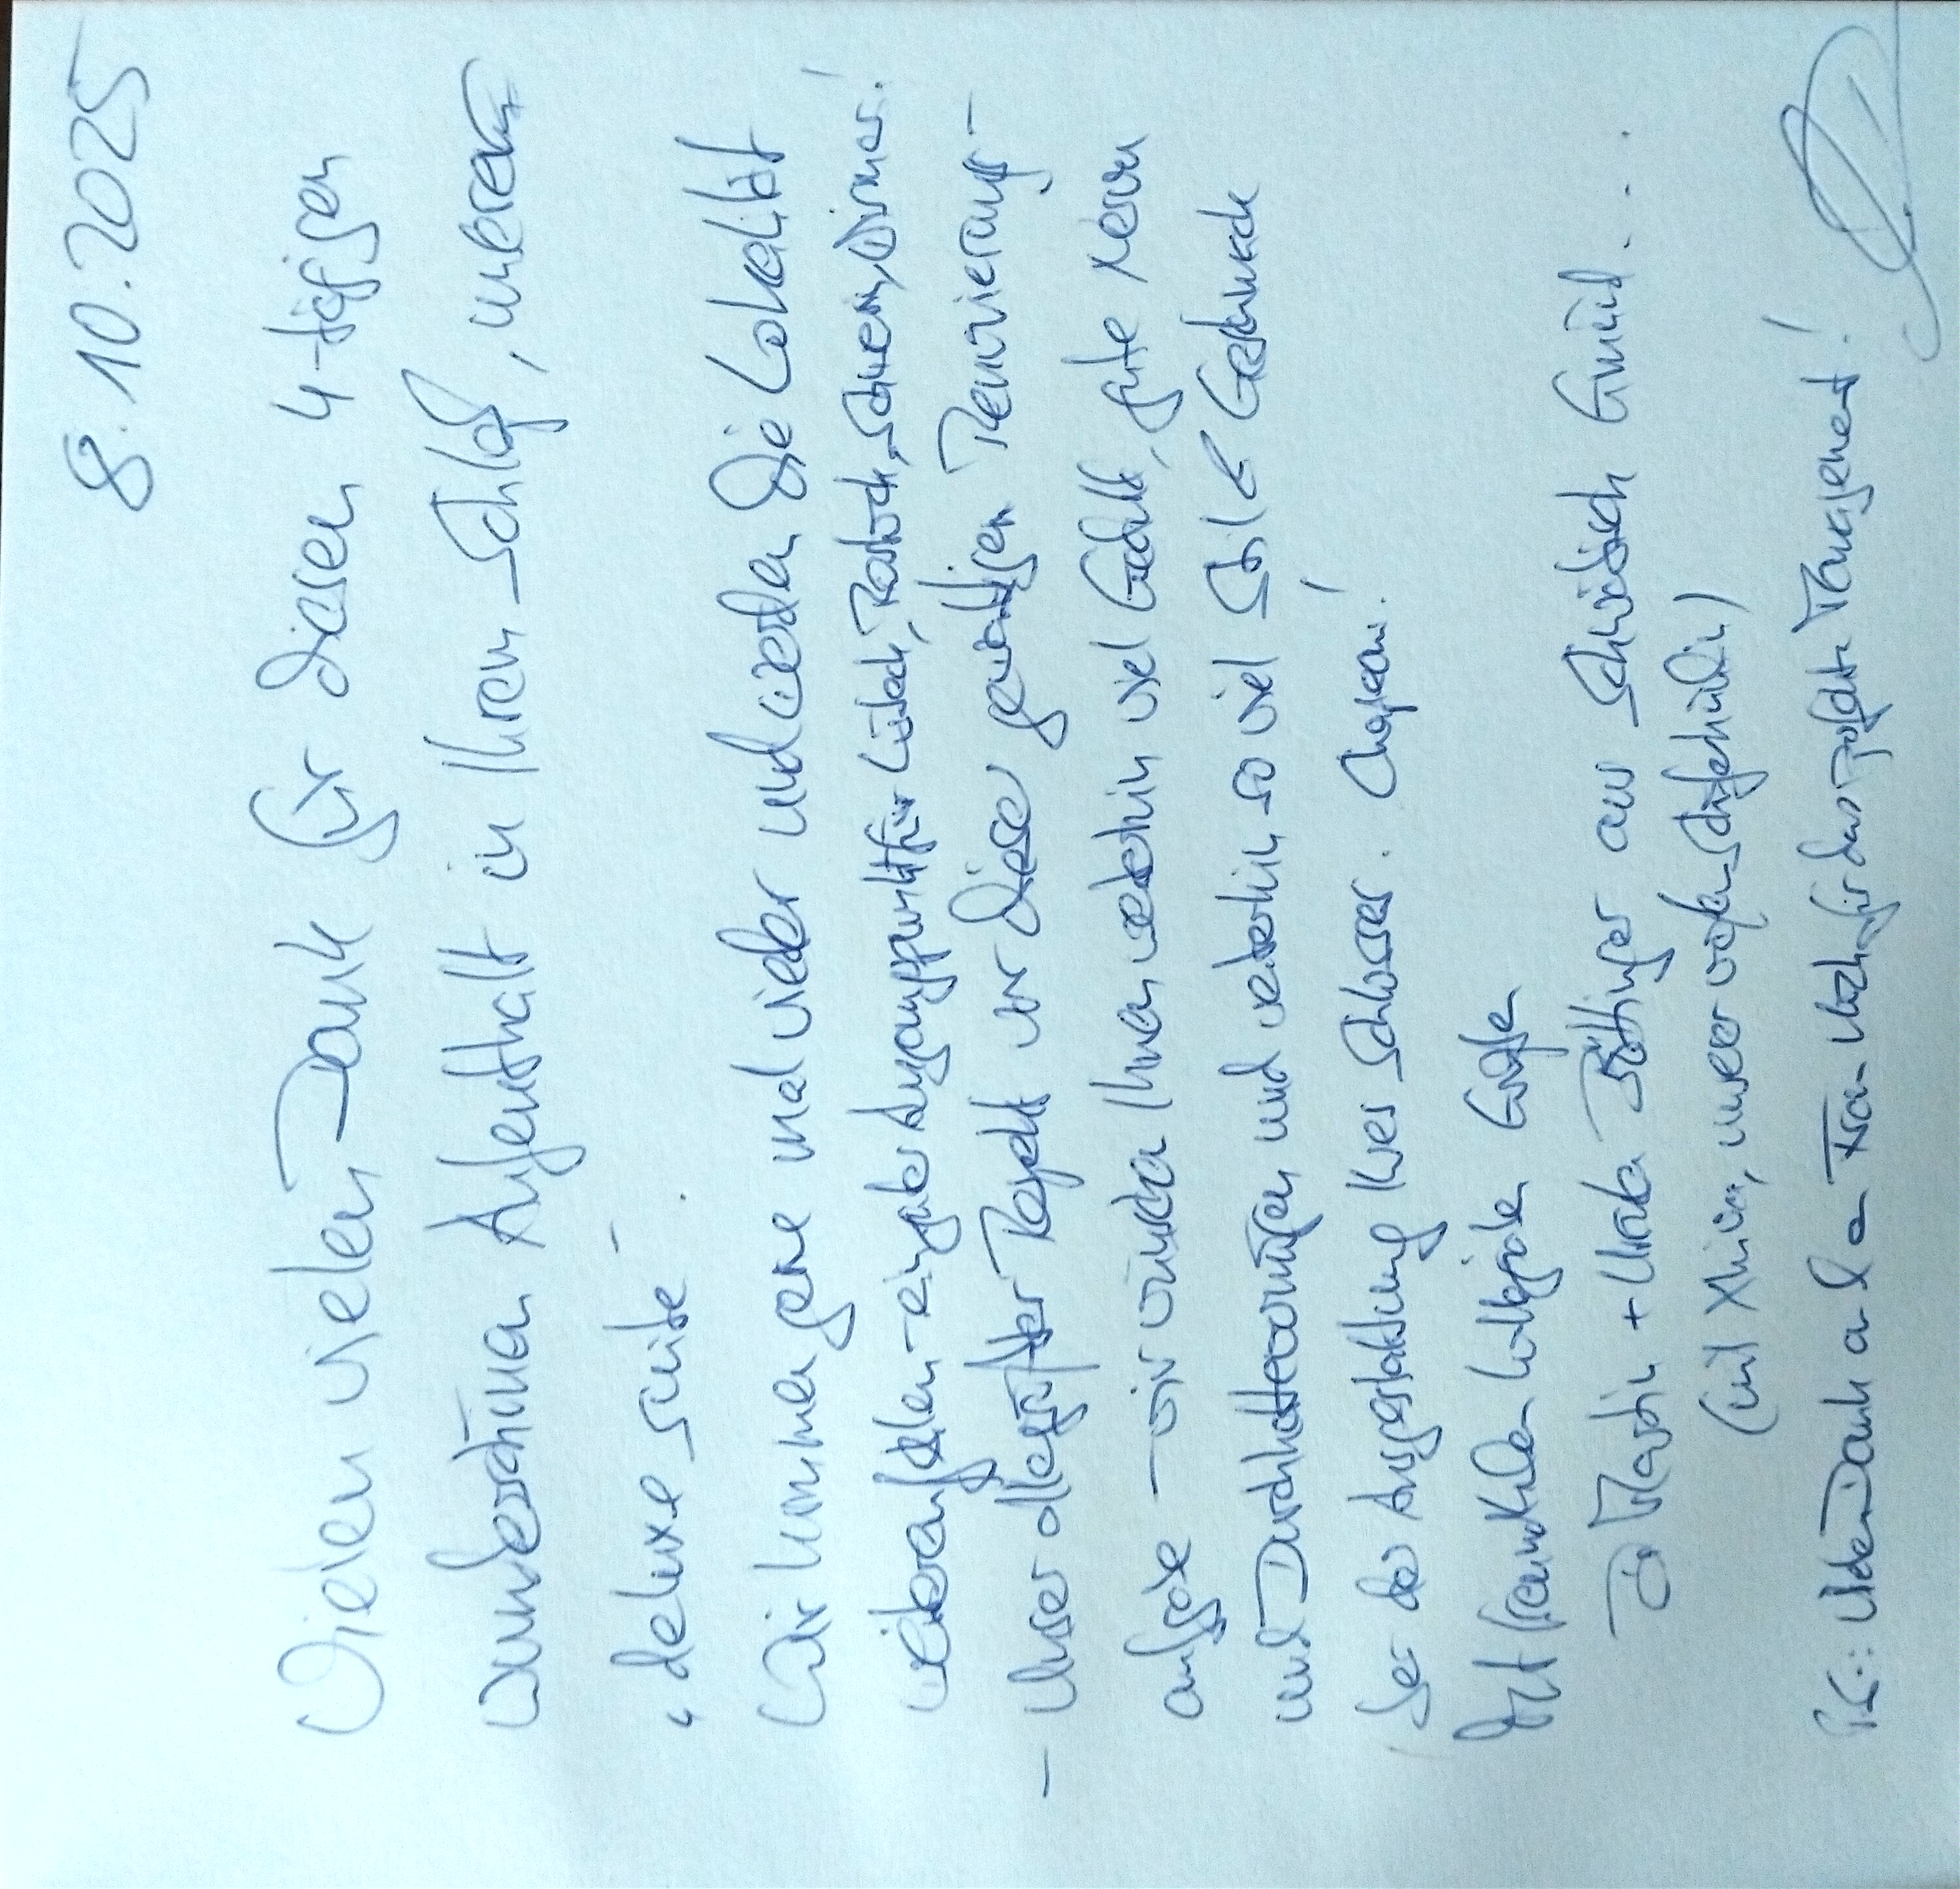 8.10.2025
Vielen vielen Dank für diesen 4-tägigen
wunderschönen Aufenthalt in Ihrem Schloß, unserem
"deluxe suite".
Wir kommen gerne mal wieder und werden die Lokalität
weiterempfehlen - ein guter Ausgangspunkt für Lübeck, Rostock, Schwerin, Wismar!
- Unser allergrößter Respekt vor dieser gewaltigen Renovierungs-
aufgabe - wir wünschen Ihnen weiterhin viel Geduld, gute Nerven
und Durchhaltevermögen und weiterhin so viel Stil & Geschmack
bei der Ausgestaltung Ihres Schlosses. Chapeau!
Mit freundlichen Grüßen
Martin + Böttinger aus Schwäbisch Gmünd...
(mit unserer Schäferhündin)
P.S.: Vielen Dank an Frau für das perfekte Management!